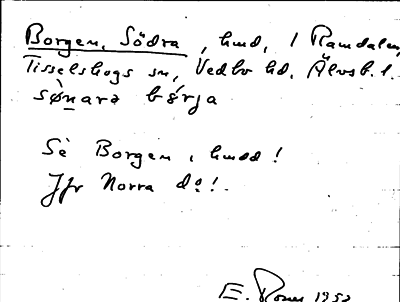 Borgen, Södra, hmd, i Ramdalen,
Tisselskogs sn, Vedbo hd, Älvsb. l.
sø̀nara bǿrja
Se Borgen, hmdd!
Jfr Norra d:o!
E. 1952